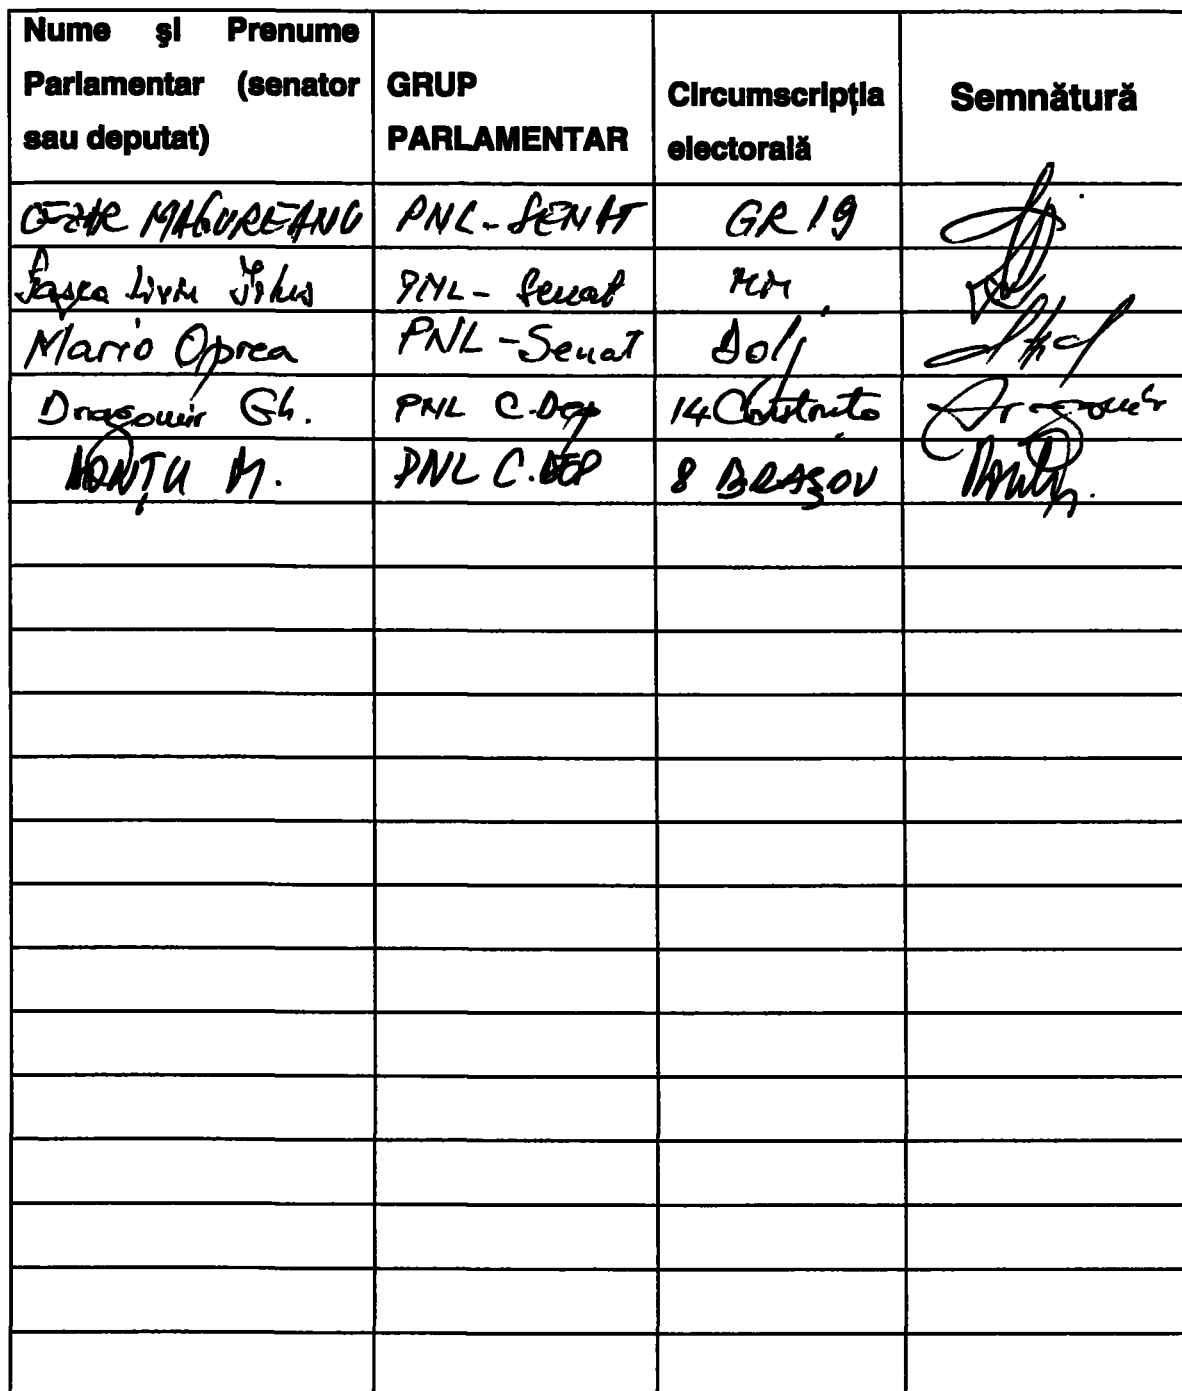 Nume şi Prenume
Parlamentar (senator
sau deputat)
GRUP
PARLAMENTAR
Circumscripţia
electorală
Semnătură
CEZAR MAGUREANU PNL-SENAT GR 19
Liviu Titus PNL - Senat MM
Mario Oprea PNL - Senat Dolj
Dragomir Gh. PNL C.Dep 14 Constanta Dragomir
MANŢU M. PNL C.DEP 8 BRAŞOV